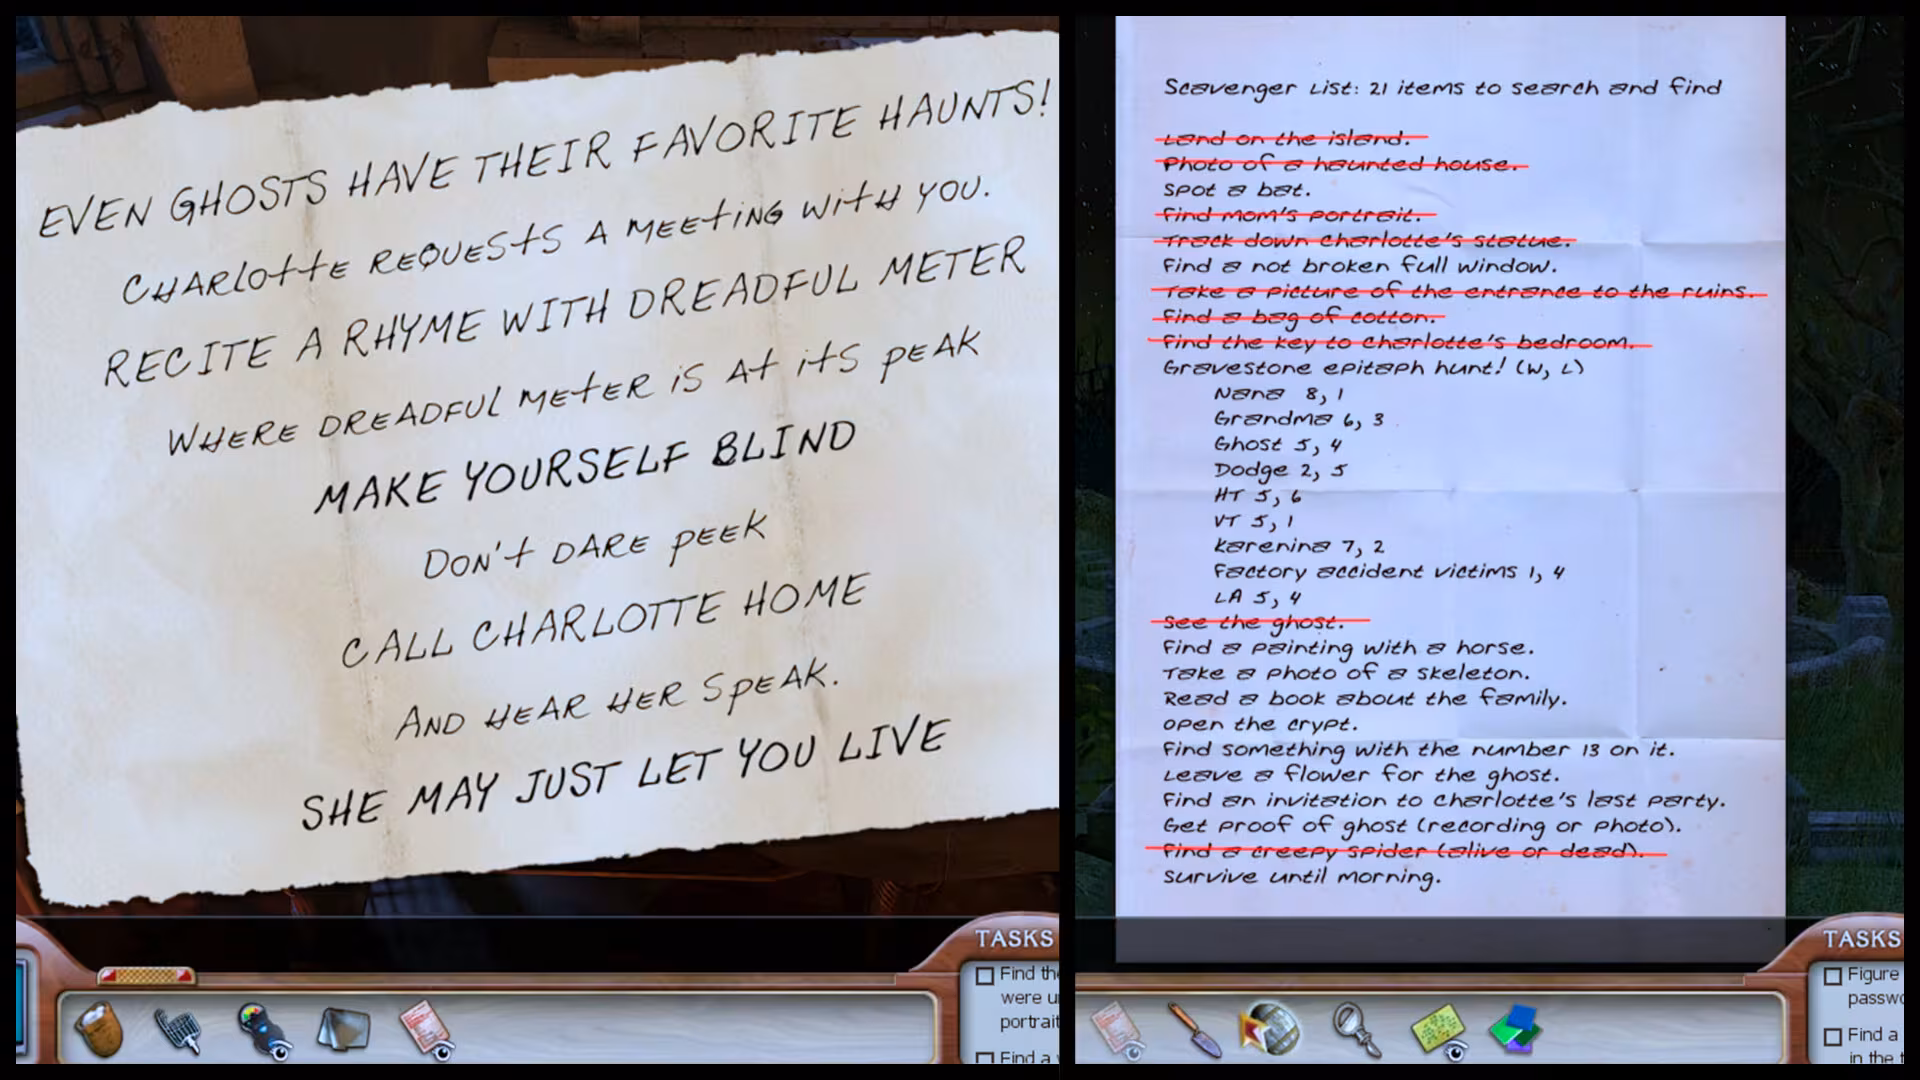 EVEN GHOSTS HAVE THEIR FAVORITE HAUNTS!
CHARLOTTE REQUESTS A MEETING WITH YOU.
RECITE A RHYME WITH DREADFUL METER
WHERE DREADFUL METER IS AT ITS PEAK
MAKE YOURSELF BLIND
DON'T DARE PEEK
CALL CHARLOTTE HOME
AND HEAR HER SPEAK.
SHE MAY JUST LET YOU LIVE
TASKS
Find the
were
portrait
Find a
Scavenger List: 21 items to search and find
Land on the island.
Photo of a haunted house.
Spot a bat.
Find mom's portrait.
Track down Charlotte's statue.
Find a not broken full window.
Take a picture of the entrance to the ruins.
Find a bag of cotton.
Find the key to Charlotte's bedroom.
Gravestone epitaph hunt! (W, L)
Nana 8, 1
Grandma 6, 3
Ghost 5, 4
Dodge 2, 5
HT 5, 6
VT 5, 1
Karenina 7, 2
Factory accident victims 1, 4
LA 5, 4
See the ghost.
Find a painting with a horse.
Take a photo of a skeleton.
Read a book about the family.
Open the crypt.
Find something with the number 13 on it.
Leave a flower for the ghost.
Find an invitation to Charlotte's last party.
Get proof of ghost (recording or photo).
Find a creepy spider (alive or dead).
Survive until morning.
TASKS
Figure
passwo
Find a
in the t